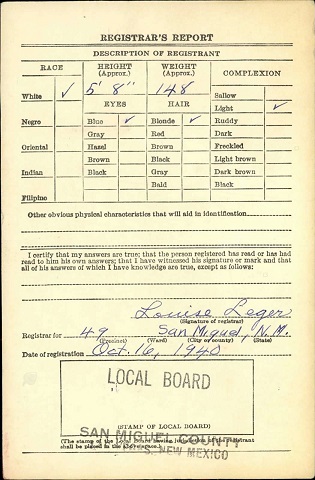 REGISTRAR'S REPORT
DESCRIPTION OF REGISTRANT
RACE HEIGHT (Approx.) WEIGHT (Approx.) COMPLEXION
5' 8" 148
White ✓ Sallow
EYES HAIR Light ✓
Negro Blue ✓ Blonde ✓ Ruddy
Gray Red Dark
Oriental Hazel Brown Freckled
Brown Black Light brown
Indian Black Gray Dark brown
Bald Black
Filipino
Other obvious physical characteristics that will aid in identification
I certify that my answers are true; that the person registered has read or has had
read to him his own answers; that I have witnessed his signature or mark and that
all of his answers of which I have knowledge are true, except as follows:
Louise Leger
(Signature of registrar)
Registrar for 49 San Miguel, N.M.
(Precinct) (Ward) (City or county) (State)
Date of registration Oct. 16, 1940
LOCAL BOARD
(STAMP OF LOCAL BOARD)
SAN MIGUEL COUNTY
(The stamp of the Local Board having jurisdiction of the registrant
shall be placed in the above space.)
NEW MEXICO